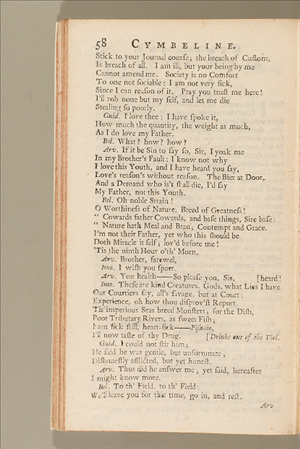 58 CYMBELINE.
Stick to your Journal course; the breach of Custom,
Is breach of all. I am ill, but your being by me
Cannot amend me. Society is no Comfort
To one not sociable: I am not very sick,
Since I can reason of it. Pray you trust me here!
I'll rob none but my self, and let me die
Stealing so poorly.
Guid. I love thee: I have spoke it,
How much the quantity, the weight as much,
As I do love my Father.
Bel. What? how? how?
Arv. If it be Sin to say so, Sir, I yoak me
In my Brother's Fault: I know not why
I love this Youth, and I have heard you say,
Love's reason's without reason. The Bier at Door,
And a Demand who is't shall die, I'd say
My Father, not this Youth.
Bel. Oh noble Strain!
O Worthiness of Nature, Breed of Greatness!
" Cowards father Cowards, and base things, Sire base:
" Nature hath Meal and Bran; Contempt and Grace.
I'm not their Father, yet who this should be
Doth Miracle it self, lov'd before me!
'Tis the ninth Hour o'th' Morn.
Arv. Brother, farewel.
Imo. I wish you sport.
Arv. You health—So please you, Sir. [heard!
Imo. These are kind Creatures. Gods, what Lies I have
Our Courtiers say, all's savage, but at Court:
Experience, oh how thou disprov'st Report.
Th' imperious Seas breed Monsters; for the Dish,
Poor Tributary Rivers, as sweet Fish;
I am sick still, heart-sick——Pisanio,
I'll now taste of thy Drug. [Drinks out of the Viol.
Guid. I could not stir him;
He said he was gentle, but unfortunate;
Dishonestly afflicted, but yet honest.
Arv. Thus did he answer me; yet said, hereafter
I might know more.
Bel. To th' Field, to th' Field:
We'll leave you for this time, go in, and rest.
Arv